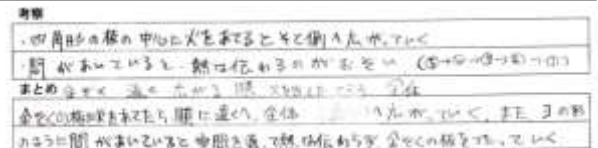 考察
・四角形の板の中心に火をあてると外側へ広がっていく
・間があいていると熱は伝わるのがおそい (⑤→②→③→④→①)
まとめ 金ぞく 遠く 広がる 順 全体
金ぞくの板は火をあてた所から順に遠くへ、全体へ広がっていく。また、ヨの形
のように間があいていると空間を通って熱は伝わらず、金ぞくの板をつたっていく